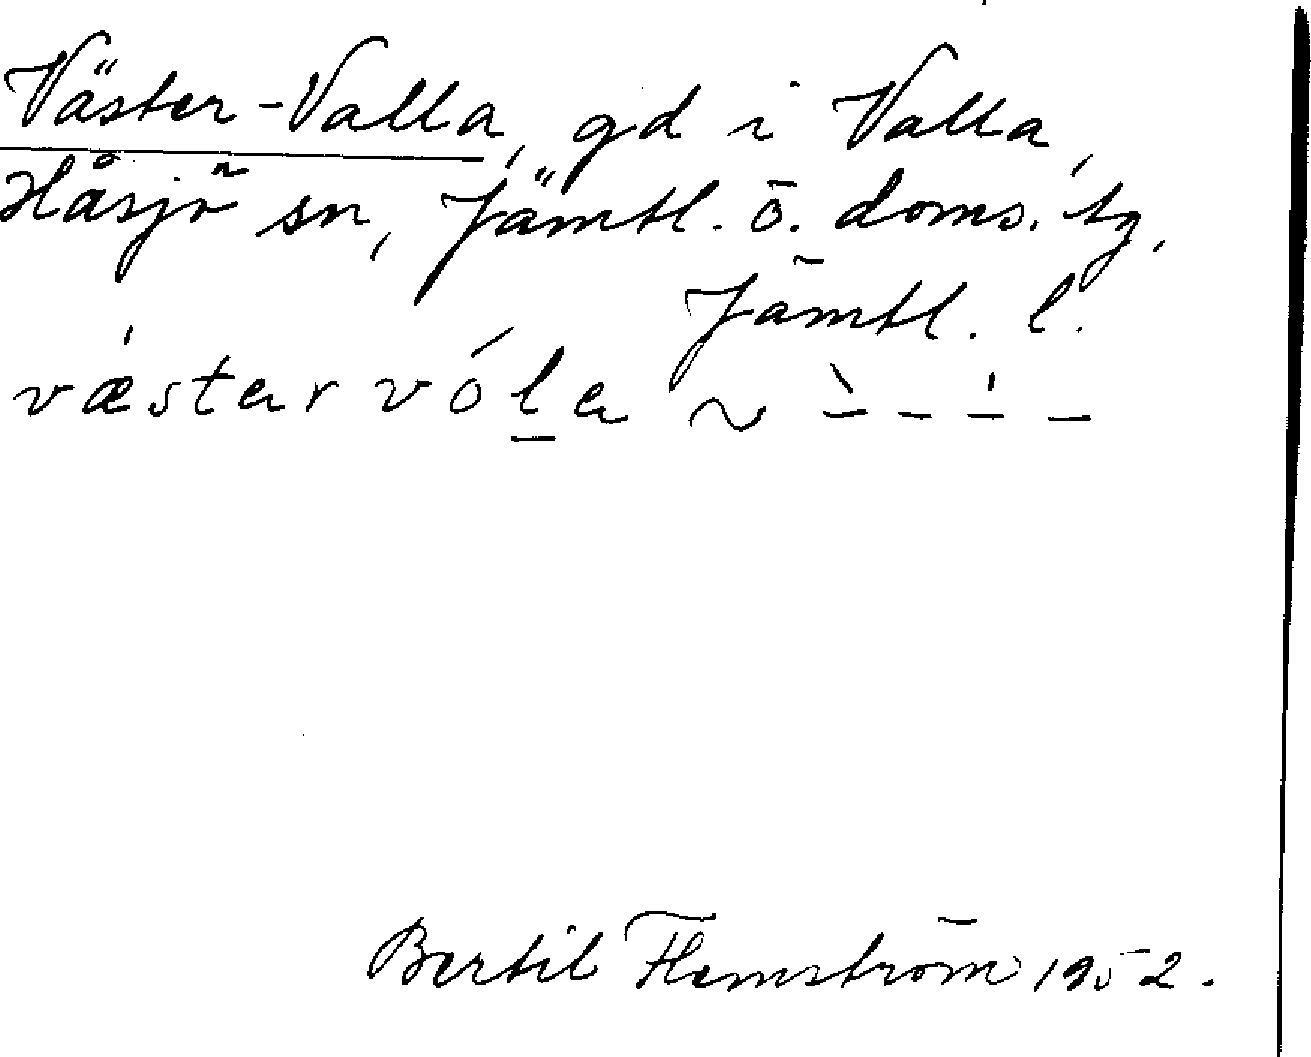 Väster-Valla, gd i Valla,
Håsjö sn, Jämtl. ö. doms. tg,
Jämtl. l.
væ̍star vól̲a ~ –̀ – –̍ –
Bertil Flemström 1952.